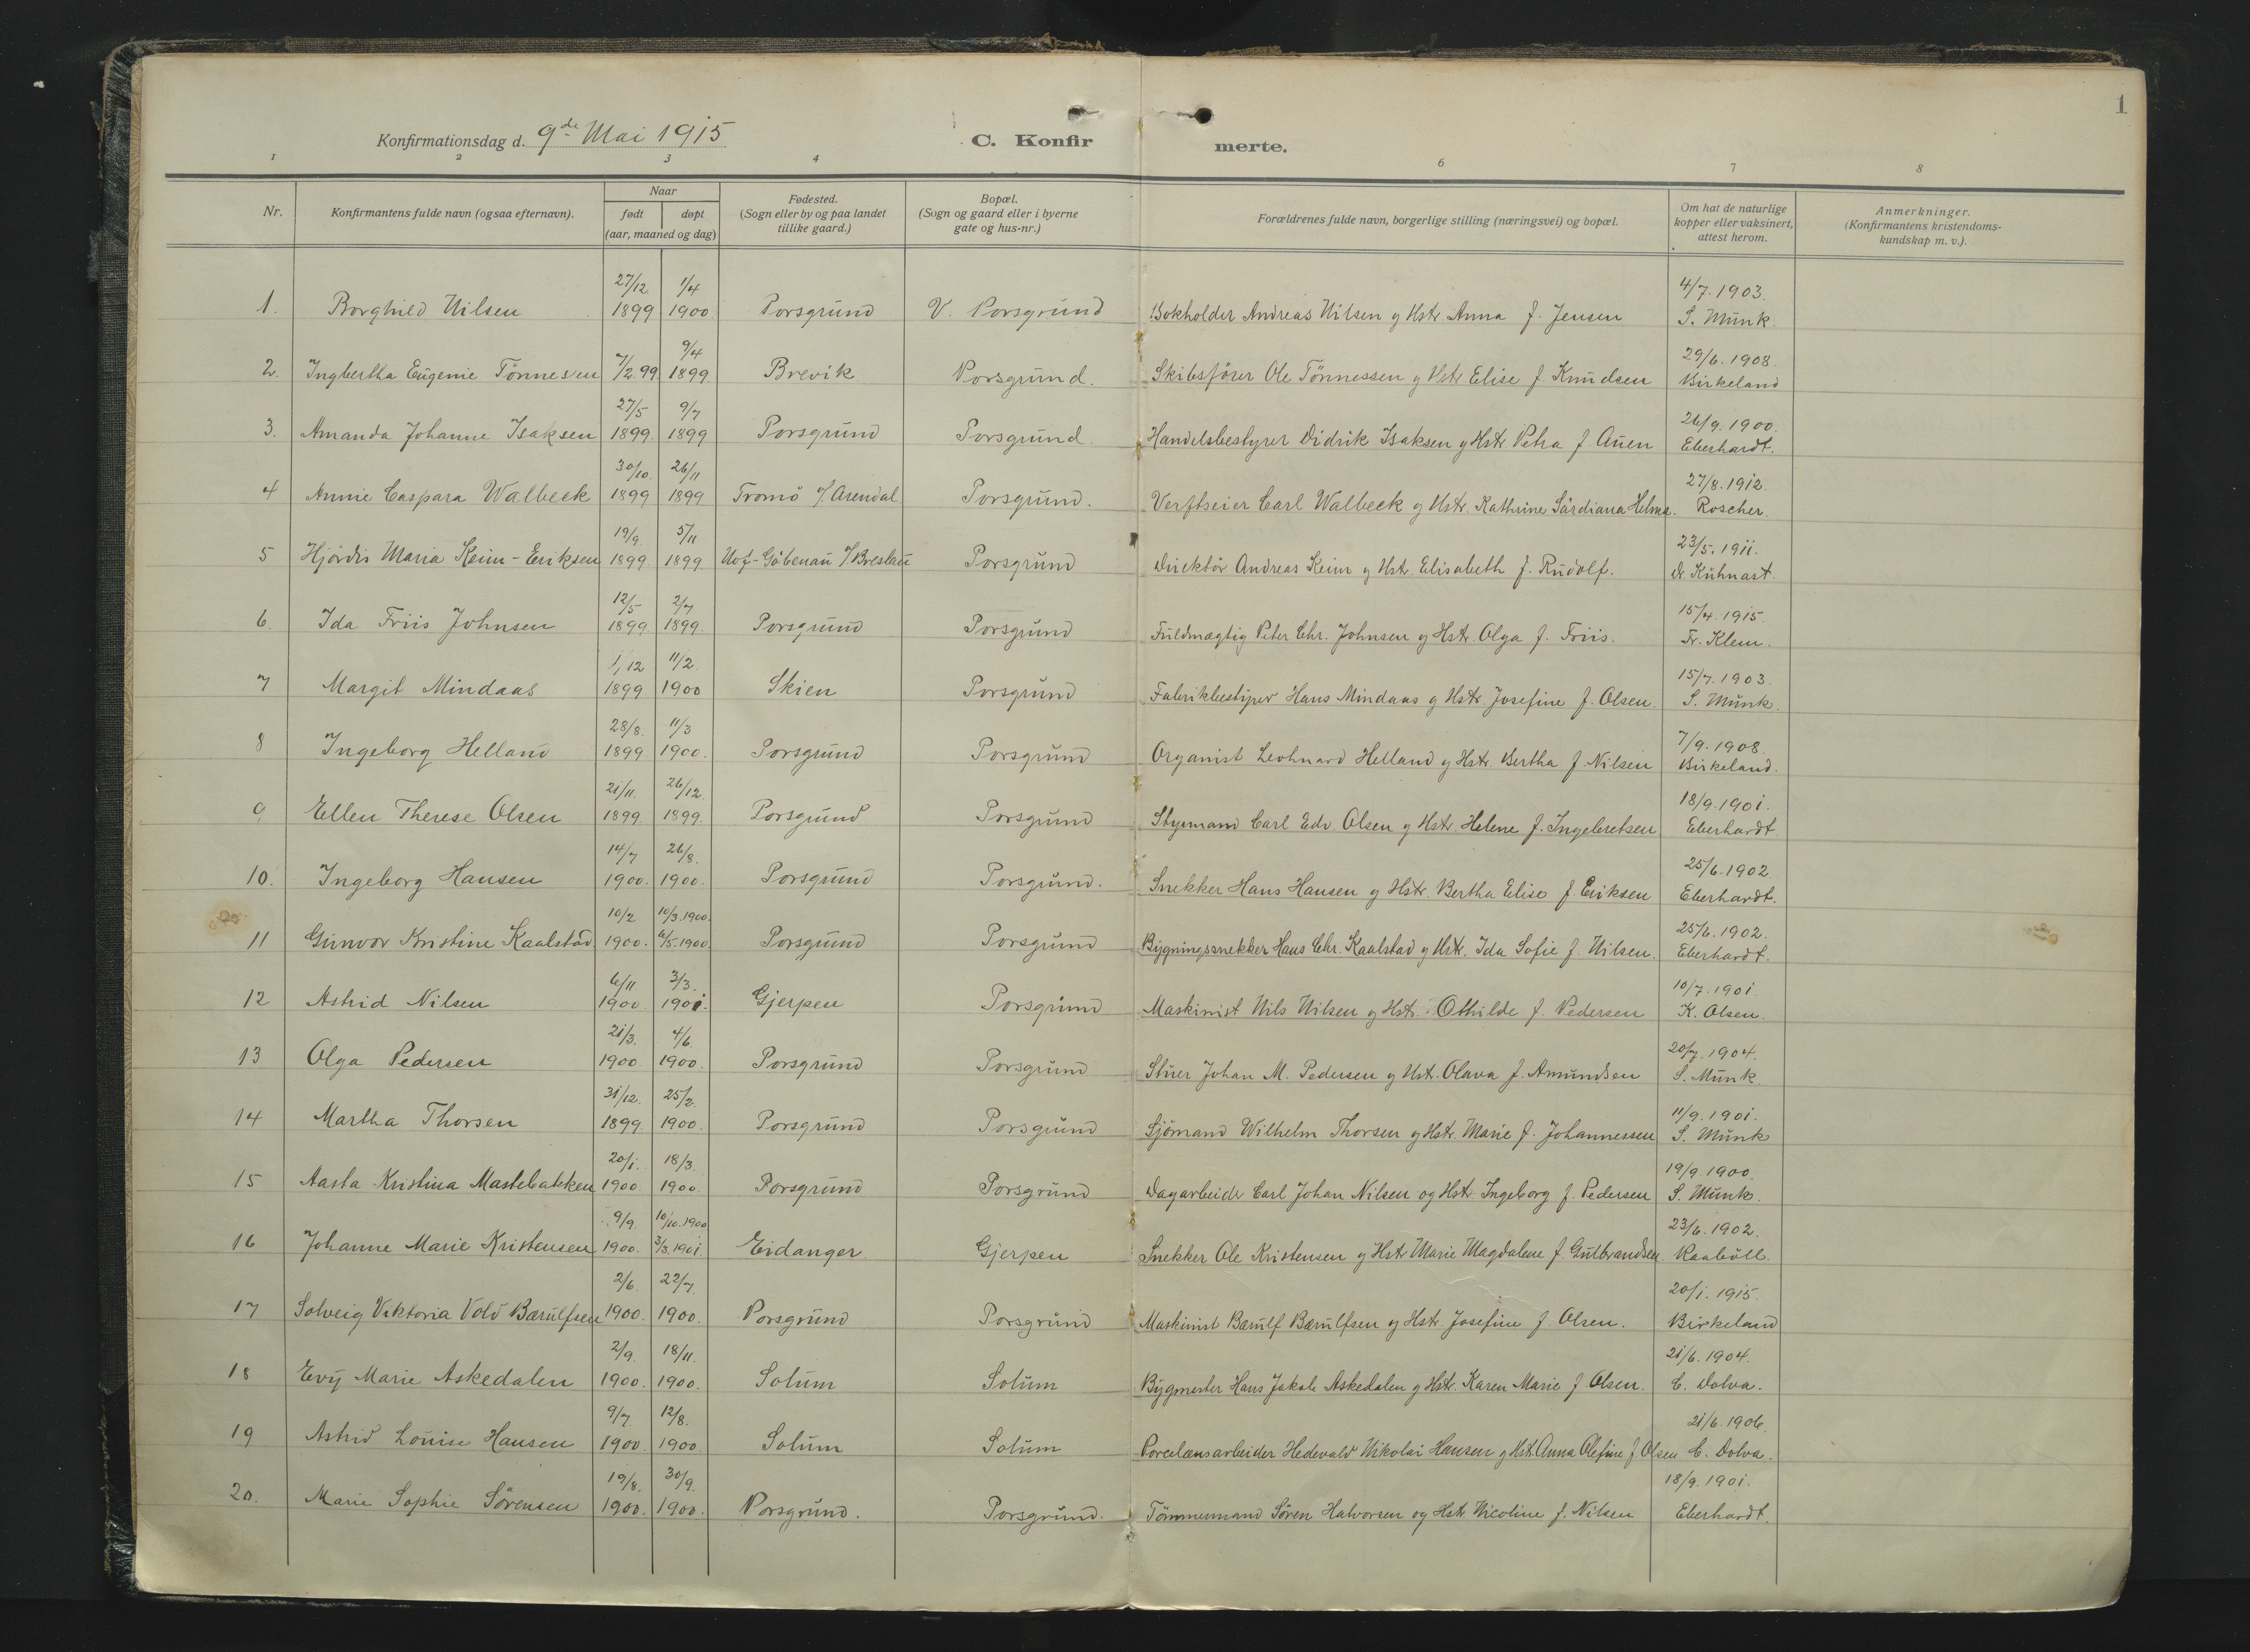 1
Konfirmationsdag d. 9de Mai 1915
C. Konfir merte.
1 2 3 4 6 7 8
Nr.
Konfirmantens fulde navn (ogsaa efternavn).
Naar
født døpt
(aar, maaned og dag)
Fødested.
(Sogn eller by og paa landet
tillike gaard.)
Bopæl.
(Sogn og gaard eller i byerne
gate og hus-nr.)
Forældrenes fulde navn, borgerlige stilling (næringsvei) og bopæl.
Om hat de naturlige
kopper eller vaksinert,
attest herom.
Anmerkninger.
(Konfirmantens kristendoms-
kundskap m. v.).
27/12. 1/4 4/7. 1903.
1. Borghild Nilsen 1899 1900 Porsgrund V. Porsgrund Bokholder Andreas Nilsen g Hstr. Anna f. Jensen S. Munk.
9/4 29/6. 1908.
2. Ingbertha Eugenie Tönnesen 7/2.99 1899 Brevik Porsgrund. Skibsförer Ole Tönnessen g Hstr Elise f. Knudsen Birkeland
27/5 9/7 26/9. 1900.
3. Amanda Johanne Isaksen 1899. 1899 Porsgrund Porsgrund. Handelsbestyrer Didrik Isaksen g Hstr. Petra f. Auen Eberhardt.
30/10. 26/11 27/8. 1912.
4 Annie Caspara Walbeck 1899 1899 Tromö /Arendal Porsgrund. Verftseier Carl Walbeck g Hstr. Kathrine Särdiana Helma. Roscher.
19/9. 5/11 23/5. 1911.
5 Hjördis Maria Keim-Eriksen 1899. 1899. Göbenau /Breslau Porsgrund Direktör Andreas Keim g Hstr. Elisabeth f. Rudolf. Dr. Kühnast.
12/5 2/7 15/4. 1915.
6. Ida Friis Johnsen 1899. 1899. Porsgrund Porsgrund Fuldmægtig Peter Chr. Johnsen g Hstr. Olga f. Friis. Fr. Klem.
1/12 11/2. 15/7. 1903.
7 Margit Mindaas 1899 1900 Skien Porsgrund Fabrikbestyrer Hans Mindaas g Hstr. Josefine f. Olsen. S. Munk.
28/8. 11/3 7/9. 1908
8 Ingeborg Helland 1899 1900. Porsgrund Porsgrund Organist Leohnard Helland g Hstr. Bertha f. Nilsen Birkeland.
21/11. 26/12 18/9. 1901.
9 Ellen Therese Olsen 1899 1899. Porsgrund Porsgrund Styrmand Carl Edv Olsen g Hstr. Helene f. Ingebretsen Eberhardt
14/7 26/8. 25/6. 1902.
10. Ingeborg Hansen 1900. 1900. Porsgrund Porsgrund. Snekker Hans Hansen g Hstr. Bertha Elise f. Eriksen Eberhardt.
10/2 10/3. 1900. 25/6. 1902.
11 Gunvor Kristine Kaalstad 1900. 6/5. 1900 Porsgrund Porsgrund Bygningssnekker Hans Chr. Kaalstad g Hstr. Ida Sofie f. Nilsen. Eberhardt.
6/11 3/3. 10/7. 1901.
12 Astrid Nilsen 1900. 1901. Gjerpen Porsgrund Maskinist Nils Nilsen g Hstr. Othilde f. Pedersen K. Olsen.
21/3. 4/6. 20/7. 1904.
13 Olga Pedersen 1900 1900. Porsgrund Porsgrund Stuer Johan M. Pedersen g Hstr. Olava f. Amundsen S. Munk.
31/12. 25/2. 11/9. 1901.
14 Martha Thorsen 1899 1900. Porsgrund Porsgrund Sjömand Wilhelm Thorsen g Hstr. Marie f. Johannessen S. Munk
20/1. 18/3. 19/9. 1900.
15 Aasta Kristina Mastebakken 1900 1900. Porsgrund Porsgrund Dagarbeider Carl Johan Nilsen og Hstr. Ingeborg f. Pedersen S. Munk.
9/9. 10/10. 1900 23/6. 1902.
16 Johanne Marie Kristensen 1900. 3/3. 1901. Eidanger Gjerpen Snekker Ole Kristensen g Hstr Marie Magdalene f. Gulbrandsen Raaböll.
2/6. 22/7. 20/1. 1915.
17 Solveig Viktoria Vold Bærulfsen 1900. 1900. Porsgrund Porsgrund Maskinist Bærulf Bærulfsen g Hstr. Josefine f. Olsen. Birkeland
2/9. 18/11. 21/6. 1904.
18 Evy Marie Askedalen 1900. 1900. Solum Solum Bygmester Hans Jakob Askedalen g Hstr. Karen Marie f Olsen. C. Dolva.
9/7. 12/8. 21/6. 1906.
19 Astrid Louise Hansen 1900. 1900. Solum Solum Porcelænsarbeider Hedevald Nikolai Hansen g Hstr. Anna Olefine f. Olsen C. Dolva.
19/8. 30/9. 18/9. 1901.
20. Marie Sophie Sörensen 1900. 1900. Porsgrund. Porsgrund. Tömmermand Sören Halvorsen og Hstr. Nicoline f. Nilsen Eberhardt.